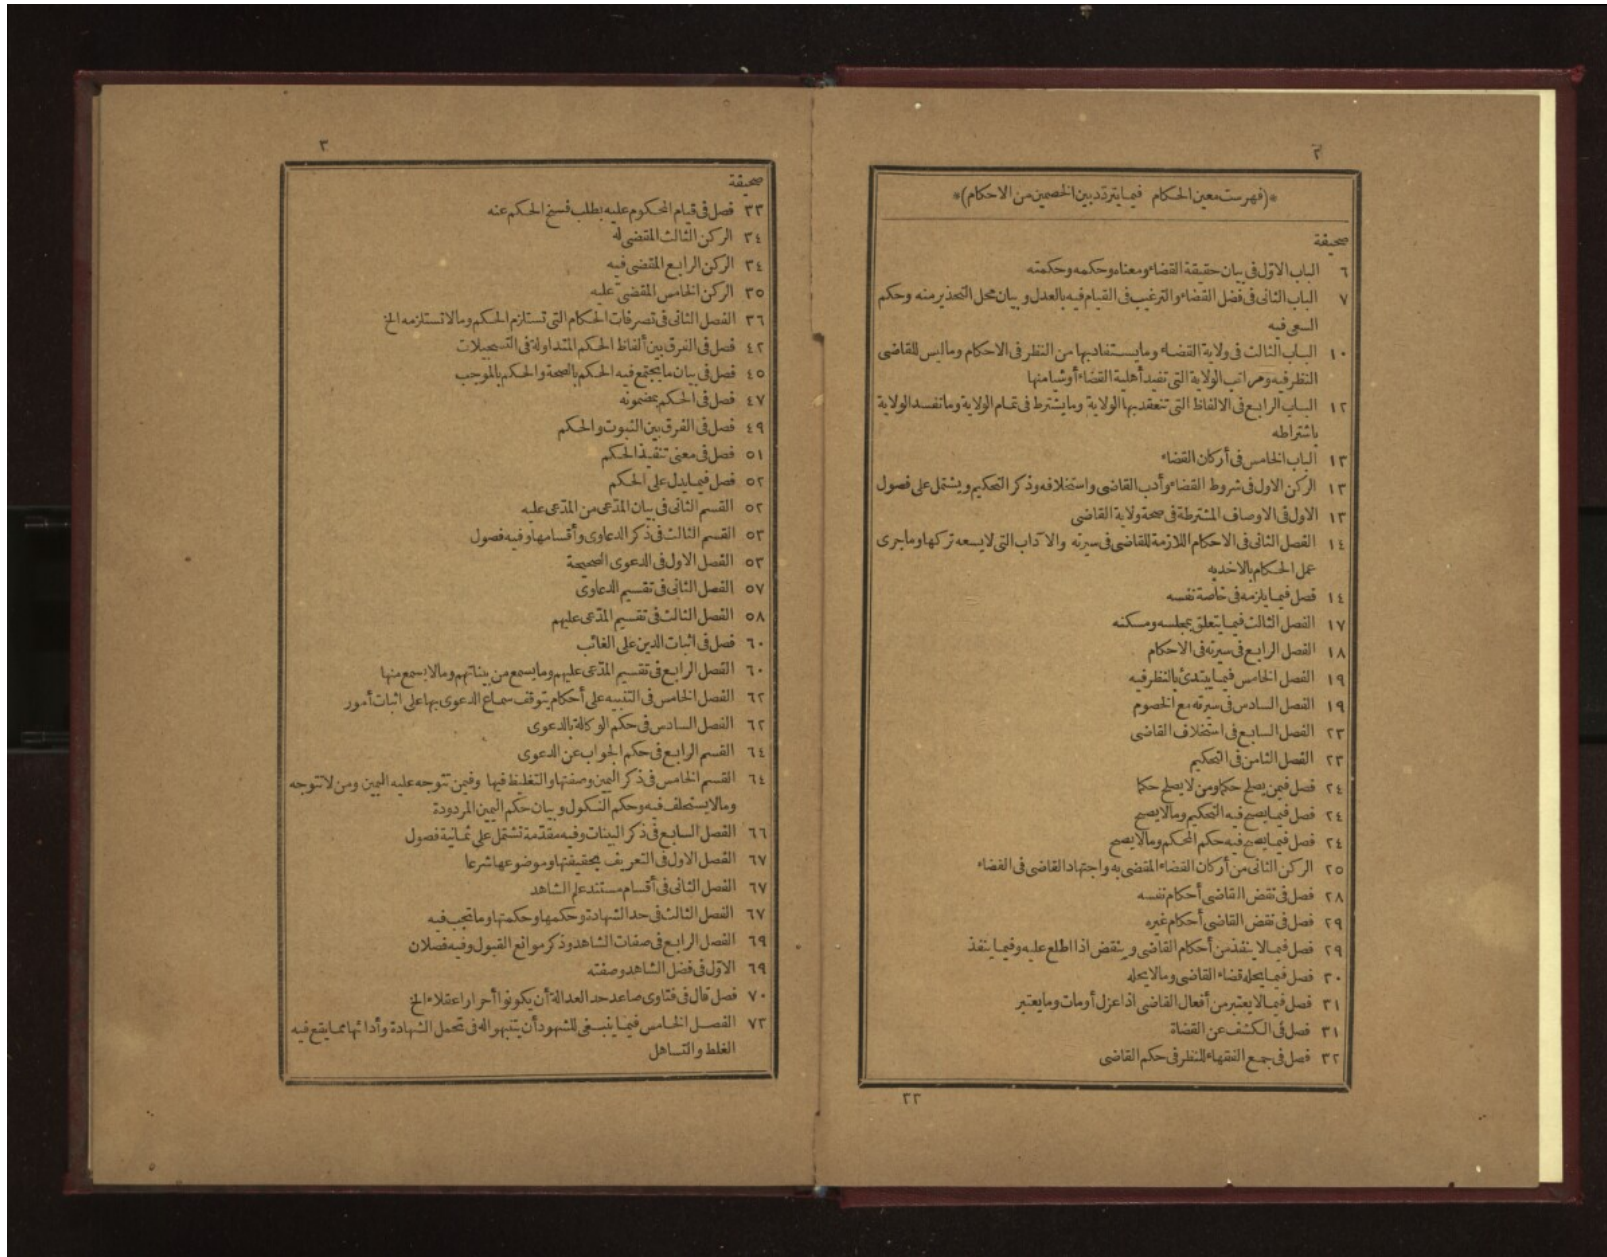 ٢
*(فهرست معين الحكام فيما يتردد بين الخصمين من الاحكام)*
صحيفة
٦ الباب الاوّل في بيان حقيقة القضاء ومعناه وحكمه وحكمته
٧ الباب الثانى فى فضل القضاء والترغيب فى القيام فيه بالعدل وبيان محل التحذير منه وحكم
السعى فيه
١٠ الباب الثالث فى ولاية القضاء ومايستفادبها من النظر فى الاحكام وماليس للقاضى
النظر فيه ومراتب الولاية التى تفيد أهلية القضاء أوشيأ منها
١٢ الباب الرابع فى الالفاظ التى تنعقد بها الولاية ومايشترط فى تمام الولاية وماتفسد الولاية
باشتراطه
١٣ الباب الخامس فى أركان القضاء
١٣ الركن الاول فى شروط القضاء وأدب القاضى واستخلافه وذكر التحكيم ويشتمل على فصول
١٣ الاول فى الاوصاف المشترطة فى صحة ولاية القاضى
١٤ الفصل الثانى فى الاحكام اللازمة للقاضى فى سيرته والآداب التى لايسعه تركها وماجرى
عمل الحكام بالاخذبه
١٤ فصل فيما يلزمه فى خاصة نفسه
١٧ الفصل الثالث فيما يتعلق بمجلسه ومسكنه
١٨ الفصل الرابع فى سيرته فى الاحكام
١٩ الفصل الخامس فيما يبتدئ بالنظر فيه
١٩ الفصل السادس فى سيرته مع الخصوم
٢٣ الفصل السابع فى استخلاف القاضى
٢٣ الفصل الثامن فى التحكيم
٢٤ فصل فيمن يصلح حكما ومن لا يصلح حكما
٢٤ فصل فيما يصح فيه التحكيم ومالايصح
٢٤ فصل فيما يصح فيه حكم المحكم ومالايصح
٢٥ الركن الثانى من أركان القضاء المقضى به واجتهاد القاضى فى القضاء
٢٨ فصل فى نقض القاضى أحكام نفسه
٢٩ فصل فى نقض القاضى أحكام غيره
٢٩ فصل فيما لا ينفذ من أحكام القاضى وينقض اذا اطلع عليه وفيما ينفذ
٣٠ فصل فيما يحله قضاء القاضى ومالايحله
٣١ فصل فيما لا يعتبر من أفعال القاضى اذاعزل أومات ومايعتبر
٣١ فصل فى الكشف عن القضاة
٣٢ فصل فى جمع الفقهاء للنظر فى حكم القاضى
٣٣
٣
صحيفة
٣٣ فصل فى قيام المحكوم عليه بطلب فسخ الحكم عنه
٣٤ الركن الثالث المقضى له
٣٤ الركن الرابع المقضى فيه
٣٥ الركن الخامس المقضىّ عليه
٣٦ الفصل الثانى فى تصرفات الحكام التى تستلزم الحكم ومالاتستلزمه الخ
٤٢ فصل فى الفرق بين ألفاظ الحكم المتداولة فى التسجيلات
٤٥ فصل فى بيان مايجتمع فيه الحكم بالصحة والحكم بالموجب
٤٧ فصل فى الحكم بمضمونه
٤٩ فصل فى الفرق بين الثبوت والحكم
٥١ فصل فى معنى تنفيذ الحكم
٥٢ فصل فيما يدل على الحكم
٥٢ القسم الثانى فى بيان المدّعى من المدّعى عليه
٥٣ القسم الثالث فى ذكر الدعاوى وأقسامها وفيه فصول
٥٣ الفصل الاول فى الدعوى الصحيحة
٥٧ الفصل الثانى فى تقسيم الدعاوى
٥٨ الفصل الثالث فى تقسيم المدّعى عليهم
٦٠ فصل فى اثبات الدين على الغائب
٦٠ الفصل الرابع فى تقسيم المدّعى عليهم ومايسمع من بيناتهم ومالايسمع منها
٦٢ الفصل الخامس فى التنبيه على أحكام يتوقف سماع الدعوى بها على اثبات أمور
٦٢ الفصل السادس فى حكم الوكالة بالدعوى
٦٤ القسم الرابع فى حكم الجواب عن الدعوى
٦٤ القسم الخامس فى ذكر اليمين وصفتها والتغليظ فيها وفيمن تتوجه عليه اليمين ومن لاتتوجه
ومالايستحلف فيه وحكم النكول وبيان حكم اليمين المردودة
٦٦ الفصل السابع فى ذكر البينات وفيه مقدّمة تشتمل على ثمانية فصول
٦٧ الفصل الاول فى التعريف بحقيقتها وموضوعها شرعا
٦٧ الفصل الثانى فى أقسام مستند علم الشاهد
٦٧ الفصل الثالث فى حد الشهادة وحكمها وحكمتها وماتجب فيه
٦٩ الفصل الرابع فى صفات الشاهد وذكر موانع القبول وفيه فصلان
٦٩ الاوّل فى فضل الشاهد وصفته
٧٠ فصل قال فى فتاوى صاعد حد العدالة أن يكونوا أحرارا عقلاء الخ
٧٣ الفصل الخامس فيما ينبغى للشهود أن يتنبهواله فى تحمل الشهادة وأدائها مما يقع فيه
الغلط والتساهل